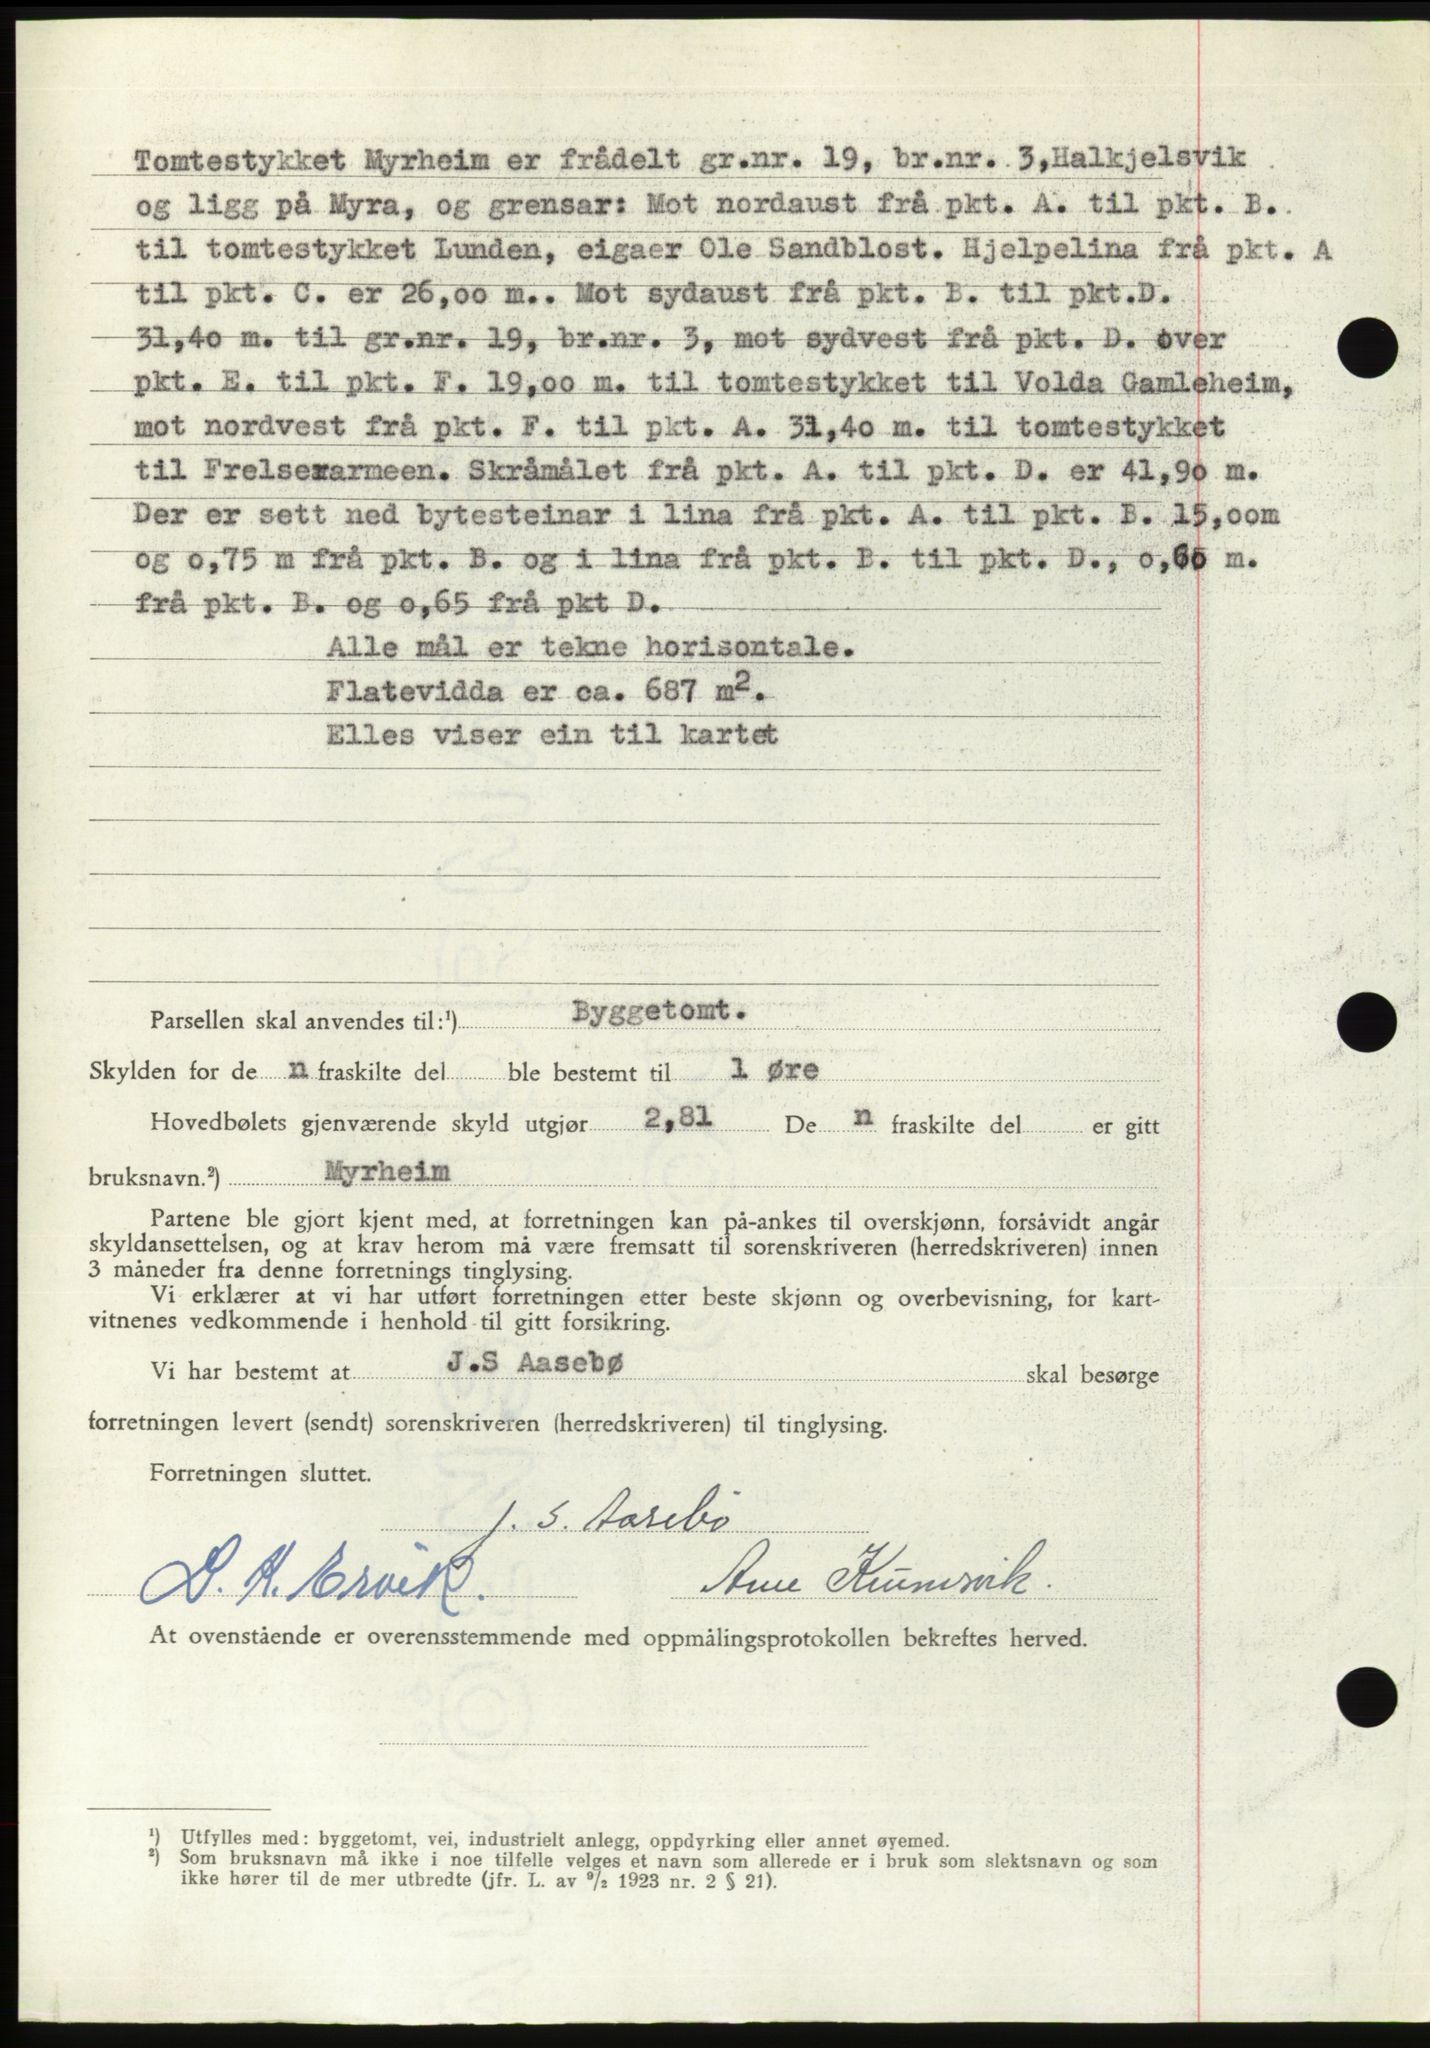 Tomtestykket Myrheim er frådelt gr.nr. 19, br.nr. 3,Halkjelsvik
og ligg på Myra, og grensar: Mot nordaust frå pkt. A. til pkt. B.
til tomtestykket Lunden, eigaer Ole Sandblost. Hjelpelina frå pkt. A
til pkt. C. er 26,oo m.. Mot sydaust frå pkt. B. til pkt.D.
31,4o m. til gr.nr. 19, br.nr. 3, mot sydvest frå pkt. D. over
pkt. E. til pkt. F. 19,oo m. til tomtestykket til Volda Gamleheim,
mot nordvest frå pkt. F. til pkt. A. 31,4o m. til tomtestykket
til Frelserarmeen. Skråmålet frå pkt. A. til pkt. D. er 41,9o m.
Der er sett ned bytesteinar i lina frå pkt. A. til pkt. B. 15,oom
og o,75 m frå pkt. B. og i lina frå pkt. B. til pkt. D., o,6o m.
frå pkt. B. og o,65 frå pkt D.
Alle mål er tekne horisontale.
Flatevidda er ca. 687 m2.
Elles viser ein til kartet
Parsellen skal anvendes til:¹) Byggetomt.
Skylden for de n fraskilte del ble bestemt til 1 øre
Hovedbølets gjenværende skyld utgjør 2,81 De n fraskilte del er gitt
bruksnavn.²) Myrheim
Partene ble gjort kjent med, at forretningen kan på-ankes til overskjønn, forsåvidt angår
skyldansettelsen, og at krav herom må være fremsatt til sorenskriveren (herredskriveren) innen
3 måneder fra denne forretnings tinglysing.
Vi erklærer at vi har utført forretningen etter beste skjønn og overbevisning, for kart-
vitnenes vedkommende i henhold til gitt forsikring.
Vi har bestemt at J.S Aasebø skal besørge
forretningen levert (sendt) sorenskriveren (herredskriveren) til tinglysing.
Forretningen sluttet.
J. S. Aasebö
D. K. Ervik. Arne Krumsvik.
At ovenstående er overensstemmende med oppmålingsprotokollen bekreftes herved.
¹) Utfylles med: byggetomt, vei, industrielt anlegg, oppdyrking eller annet øyemed.
²) Som bruksnavn må ikke i noe tilfelle velges et navn som allerede er i bruk som slektsnavn og som
ikke hører til de mer utbredte (jfr. L. av ⁹/₂ 1923 nr. 2 § 21).